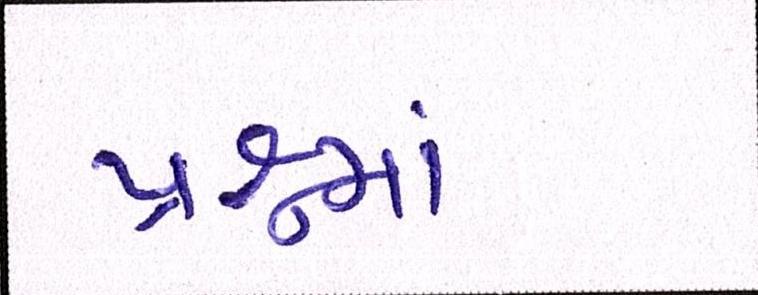 પ્રશ્નમાં